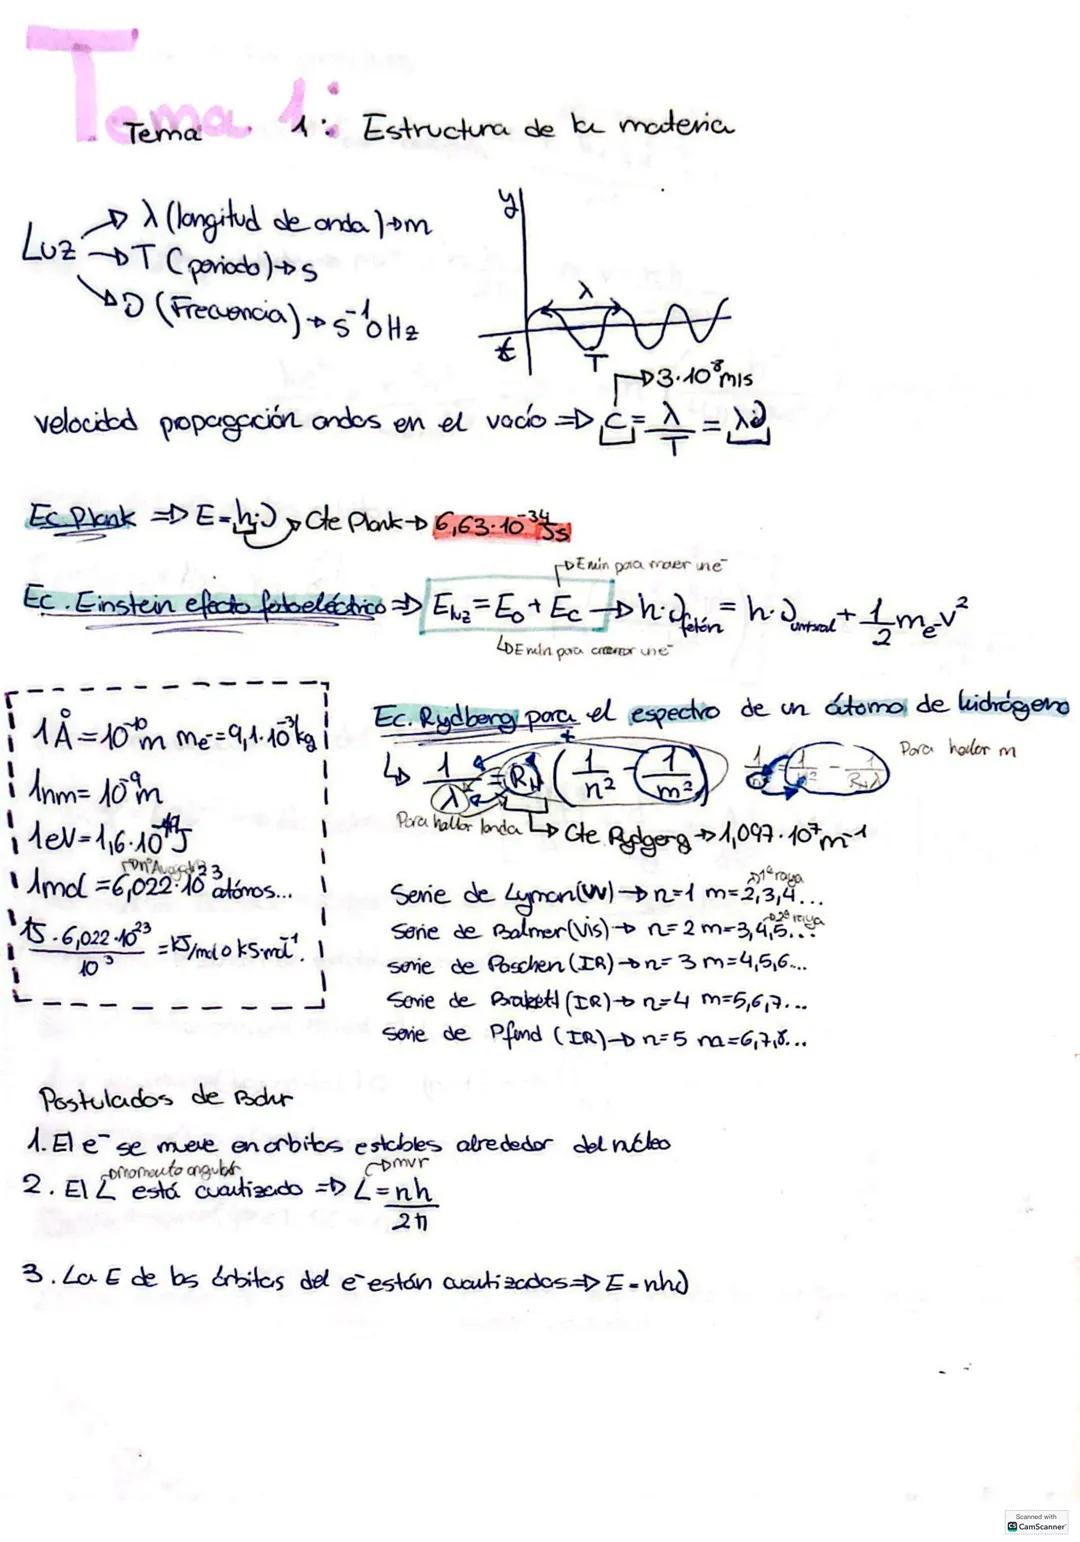 Tema 1:
Tema 1: Estructura de la materia
Luz
→ λ (longitud de onda) → m
→ T (periodo) → s
→ ν (Frecuencia) → s⁻¹ o Hz
y
λ
t
T
→ 3·10⁸ m/s
velocidad propagación ondas en el vacío ⇒ C = λ/T = λν
Ec. Plank ⇒ E = h·ν → Cte Plank → 6,63·10⁻³⁴ Js
→ E min para
Ec. Einstein efecto fotoeléctrico ⇒ Eluz = E₀ + Ec → h·νfotón = h·νumbral + 1/2 me⁻v²
↳ E min para une⁻
1 Å = 10⁻¹⁰ m me⁻ = 9,1·10⁻³¹ kg
1nm = 10⁻⁹ m
1eV = 1,6·10⁻¹⁹ J
→ nº Avogadro
1mol = 6,022·10²³ átomos...
(J·6,022·10²³)/10³ = kJ/mol o kJ·mol⁻¹.
Ec. Rydberg para el espectro de un átomo de hidrógeno
+
↳ 1/λ = R_H (1/n² - 1/m²)
1/m² = 1/n² - 1/R_Hλ
Para hallar m
Para hallar landa
↳ Cte. Rydgerg → 1,097·10⁷ m⁻¹
→ 1ª raya
Serie de Lyman (UV) → n=1 m=2,3,4...
→ 2ª raya
Serie de Balmer (Vis) → n=2 m=3,4,5...
serie de Paschen (IR) → n=3 m=4,5,6...
Serie de Brakett (IR) → n=4 m=5,6,7...
serie de Pfund (IR) → n=5 m=6,7,8...
Postulados de Bohr
1. El e⁻ se mueve en orbitas estables alrededor del núcleo
→ momento angular
→ mvr
2. El L está cuantizado ⇒ L = nh/2π
3. La E de las órbitas del e⁻ están cuantizados ⇒ E = nhν
Scanned with
CS CamScanner